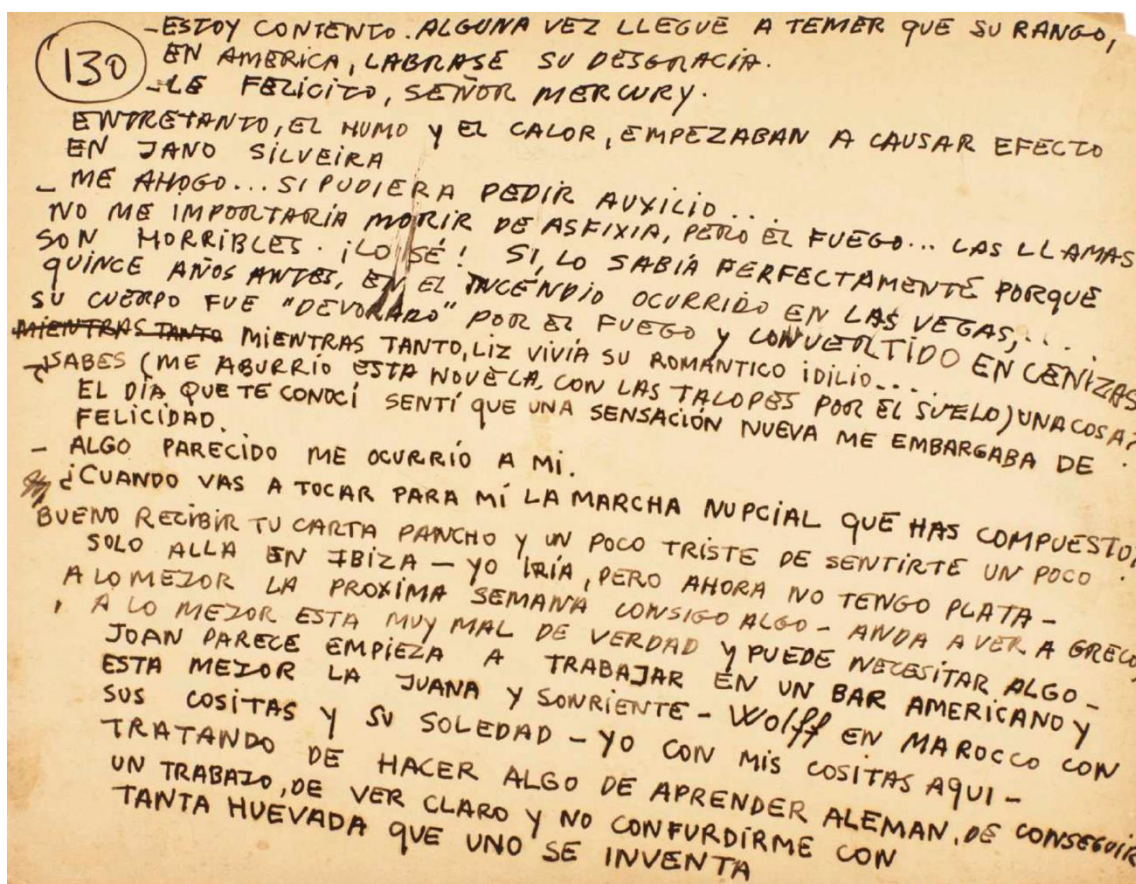 -ESTOY CONTENTO. ALGUNA VEZ LLEGUE A TEMER QUE SU RANGO,
130 EN AMERICA, LABRASE SU DESGRACIA.
-LE FELICITO, SEÑOR MERCURY.
ENTRETANTO, EL HUMO Y EL CALOR, EMPEZABAN A CAUSAR EFECTO
EN JANO SILVEIRA
- ME AHOGO... SI PUDIERA PEDIR AUXILIO...
NO ME IMPORTARÍA MORIR DE ASFIXIA, PERO EL FUEGO... LAS LLAMAS
SON HORRIBLES. ¡LO SÉ! SI, LO SABÍA PERFECTAMENTE PORQUE
QUINCE AÑOS ANTES, EN EL INCENDIO OCURRIDO EN LAS VEGAS,...
SU CUERPO FUE "DEVORADO" POR EL FUEGO Y CONVERTIDO EN CENIZAS
MIENTRAS TANTO MIENTRAS TANTO, LIZ VIVÍA SU ROMANTICO IDILIO....
-¿SABES (ME ABURRIO ESTA NOVELA, CON LAS TALOPES POR EL SUELO) UNA COSA?
EL DÍA QUE TE CONOCÍ SENTÍ QUE UNA SENSACIÓN NUEVA ME EMBARGABA DE
FELICIDAD.
- ALGO PARECIDO ME OCURRÍO A MI.
¿CUANDO VAS A TOCAR PARA MÍ LA MARCHA NUPCIAL QUE HAS COMPUESTO?
BUENO RECIBIR TU CARTA PANCHO Y UN POCO TRISTE DE SENTIRTE UN POCO
SOLO ALLA EN IBIZA - YO IRÍA, PERO AHORA NO TENGO PLATA -
A LO MEJOR LA PROXIMA SEMANA CONSIGO ALGO - ANDA A VER A GRECO,
A LO MEJOR ESTA MUY MAL DE VERDAD Y PUEDE NECESITAR ALGO -
JOAN PARECE EMPIEZA A TRABAJAR EN UN BAR AMERICANO Y
ESTA MEJOR LA JUANA Y SONRIENTE - Wolff EN MAROCCO CON
SUS COSITAS Y SU SOLEDAD - YO CON MIS COSITAS AQUI -
TRATANDO DE HACER ALGO DE APRENDER ALEMAN, DE CONSEGUIR
UN TRABAJO, DE VER CLARO Y NO CONFURDIRME CON
TANTA HUEVADA QUE UNO SE INVENTA